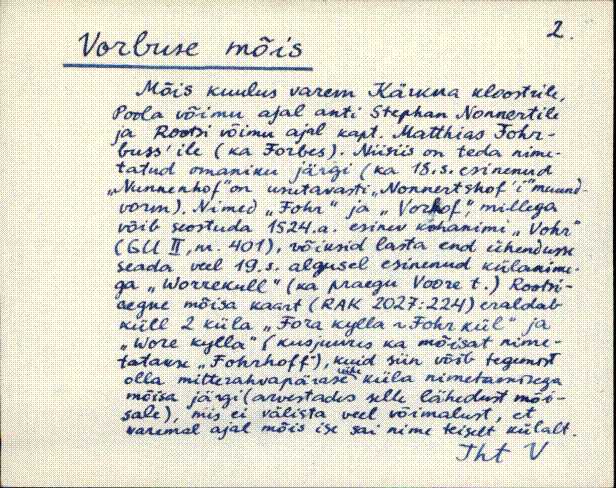 2.
Vorbuse mõis
Mõis kuulus varem Kärkna kloostrile,
Poola võimu ajal anti Stephan Nonnertile
ja Rootsi võimu ajal kapt. Matthias Fohr-
buss'ile (ka Forbes). Niisiis on teda nime-
tatud omaniku järgi (ka 18.s. esinenud
„Nunnenhof" on usutavasti „Nonnertshof'i" muund-
vorm). Nimed „Fohr" ja „Vorhof", millega
võib seostuda 1524.a. esinev kohanimi „Vohr"
(GU II, nr. 401), võiksid lasta end ühendusse
seada veel 19.s. algusel esinenud külanime-
ga „Worrekull" (ka praegu Voore t.) Rootsi-
aegne mõisa kaart (RAK 2027:224) eraldab
küll 2 küla „Fora kylla ~ Fohr kül" ja
„Wore kylla" (kusjuures ka mõisat nime-
tatakse „Fohrhoff"), kuid siin võib tegemist
olla mitterahvapärase ühe küla nimetamisega
mõisa järgi (arvestades selle lähedust mõi-
sale), mis ei välista veel võimalust, et
varemal ajal mõis ise sai nime teiselt külalt.
Tht V